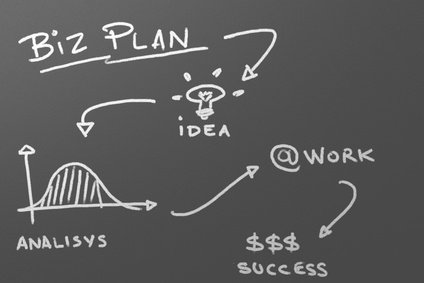 BIZ PLAN
iDEA
ANALISYS
@WORK
$$$
SUCCESS